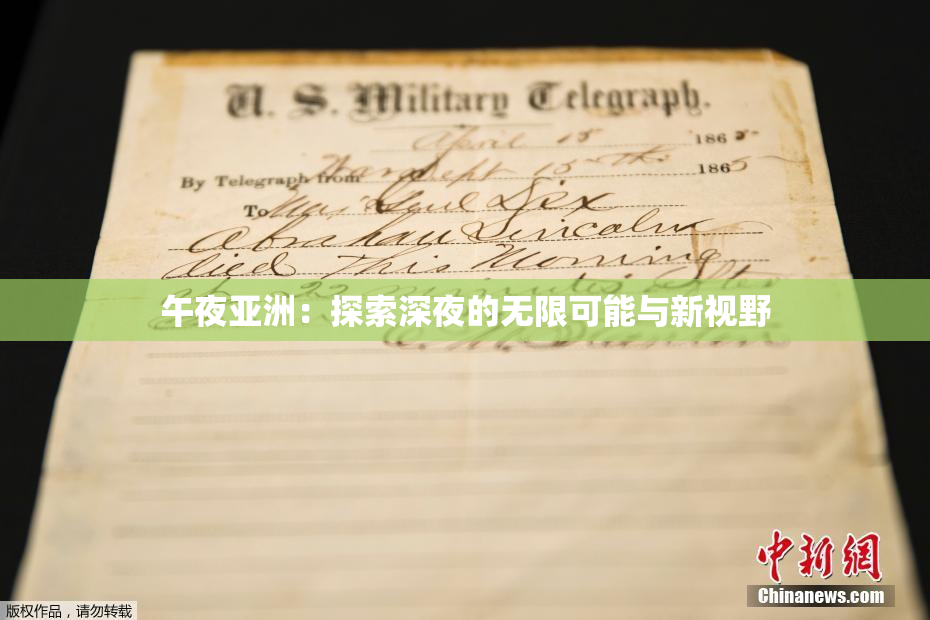 U. S. Military Telegraph.
April 15 1865
By Telegraph from War Dept 15th 1865
To Maj Genl Dix
Abraham Lincoln
died This Morning
22 minutes after
午夜亚洲：探索深夜的无限可能与新视野
中新网
Chinanews.com
版权作品，请勿转载